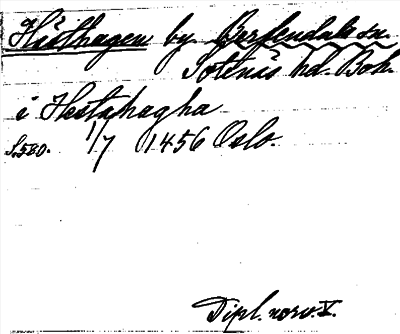 Hästhagen by. Bärfendals sn.
Sotenäs hd. Boh.
i Hestahagha
S. 580. 1/7 1456 Oslo.
Dipl. norv. V.